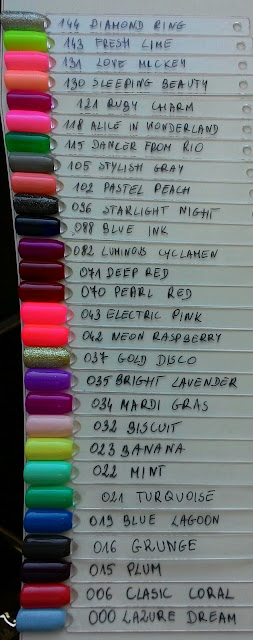 144 DIAMOND RING
143 FRESH LIME
131 LOVE MICKEY
130 SLEEPING BEAUTY
121 RUBY CHARM
118 ALICE IN WONDERLAND
115 DANCER FROM RIO
105 STYLISH GRAY
102 PASTEL PEACH
096 STARLIGHT NIGHT
088 BLUE INK
082 LUMINOUS CYCLAMEN
071 DEEP RED
070 PEARL RED
043 ELECTRIC PINK
042 NEON RASPBERRY
037 GOLD DISCO
035 BRIGHT LAVENDER
034 MARDI GRAS
032 BISCUIT
023 BANANA
022 MINT
021 TURQUOISE
019 BLUE LAGOON
016 GRUNGE
015 PLUM
006 CLASIC CORAL
000 LAZURE DREAM